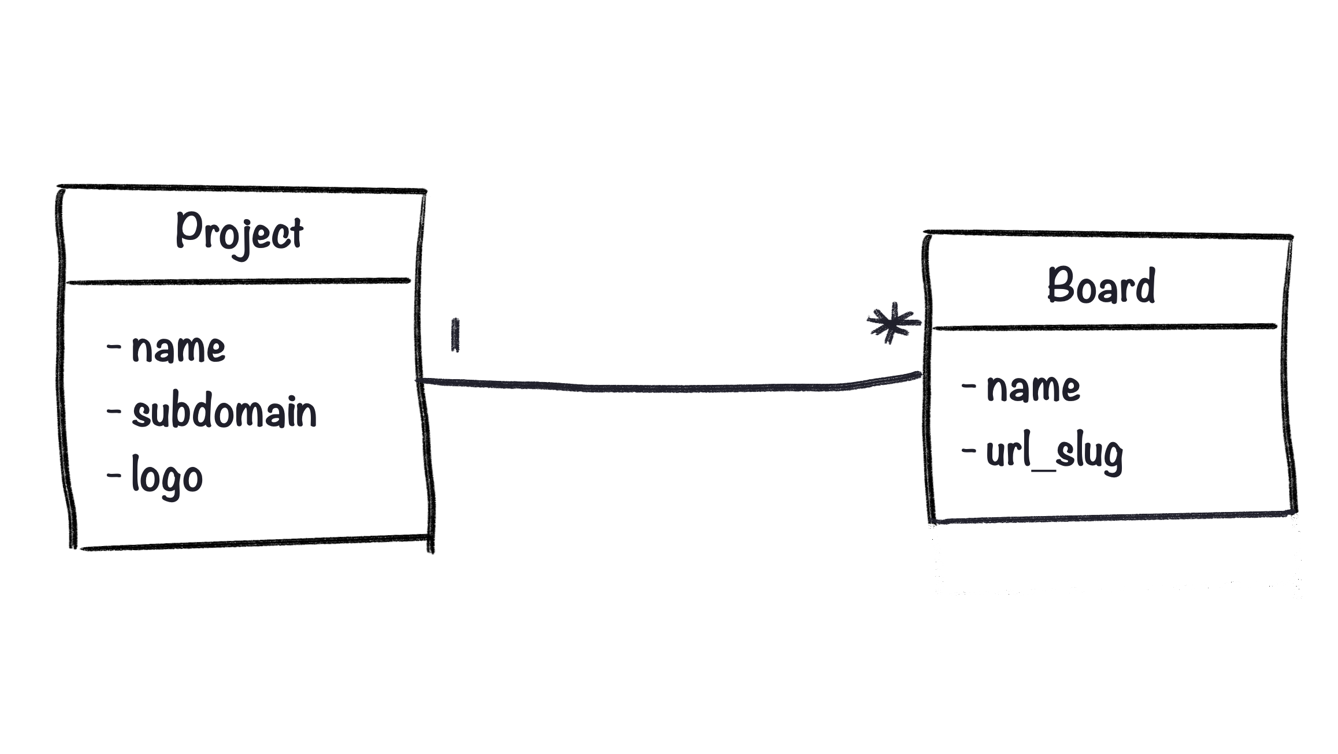 Project
- name
- subdomain
- logo
1
*
Board
- name
- url_slug